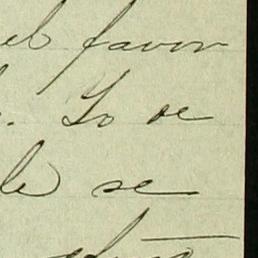 el favor
. Yo se
le se